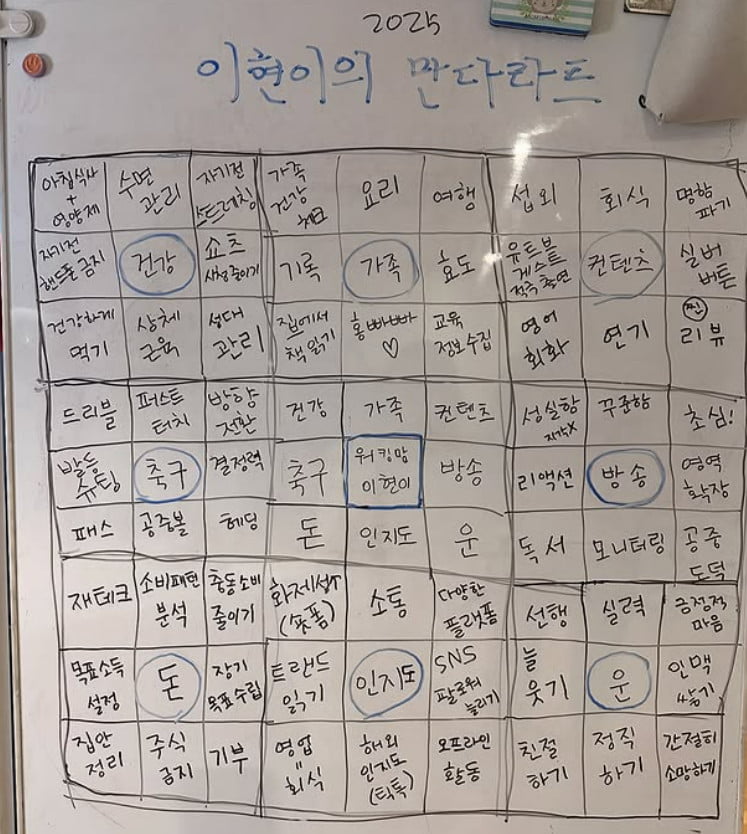 2025
이현이의 만다라트
아침식사 + 영양제 수면 관리 자기전 스트레칭 가족 건강 체크 요리 여행 섭외 회식 명함 파기
자기전 핸드폰 금지 건강 쇼츠 시청 줄이기 기록 가족 효도 유튜브 게스트 적극 출연 컨텐츠 실버 버튼
건강하게 먹기 상체 근육 성대 관리 집에서 책 읽기 홍빠빠빠 ♡ 교육 정보 수집 영어 회화 연기 찐 리뷰
드리블 퍼스트 터치 방향 전환 건강 가족 컨텐츠 성실함 지각X 꾸준함 초심!
발등 슈팅 축구 결정력 축구 워킹맘 이현이 방송 리액션 방송 영역 확장
패스 공중볼 헤딩 돈 인지도 운 독서 모니터링 공중 도덕
재테크 소비패턴 분석 충동소비 줄이기 화제성↑ (숏폼) 소통 다양한 플랫폼 선행 실력 긍정적 마음
목표소득 설정 돈 장기 목표수립 트랜드 읽기 인지도 SNS 팔로워 늘리기 늘 웃기 운 인맥 쌓기
집안 정리 주식 금지 기부 영업 = 회식 해외 인지도 (틱톡) 오프라인 활동 친절 하기 정직 하기 간절히 소망하기